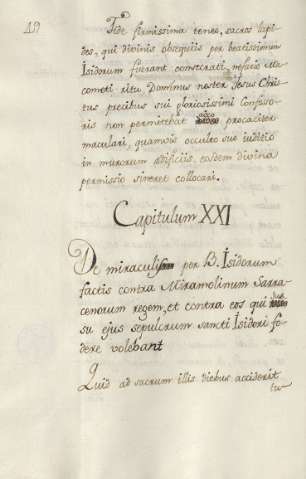 Fide firmissima tenea, sacros lapi-
des, qui divinis obsequiis per beatissimum
Isidorum fuerant consecrati, nefario
cometi ritu, Dominus noster Jesus Chris-
tus precibus sui gloriosissimi confesso-
ris non permitebat adeo procaciter
maculari, quamvis occulto suo iuditio
in murorum ædificiis, eosdem divina
permissio sineret collocari.
Capitulum XXI
De miraculis per B. Isidorum
factis contra Miramolinum Sarra-
cenorum regem, et contra eos qui
su ejus sepulcrum sancti Isidori fo-
dere volebant
Quid ad sacrum illis diebus acciderit